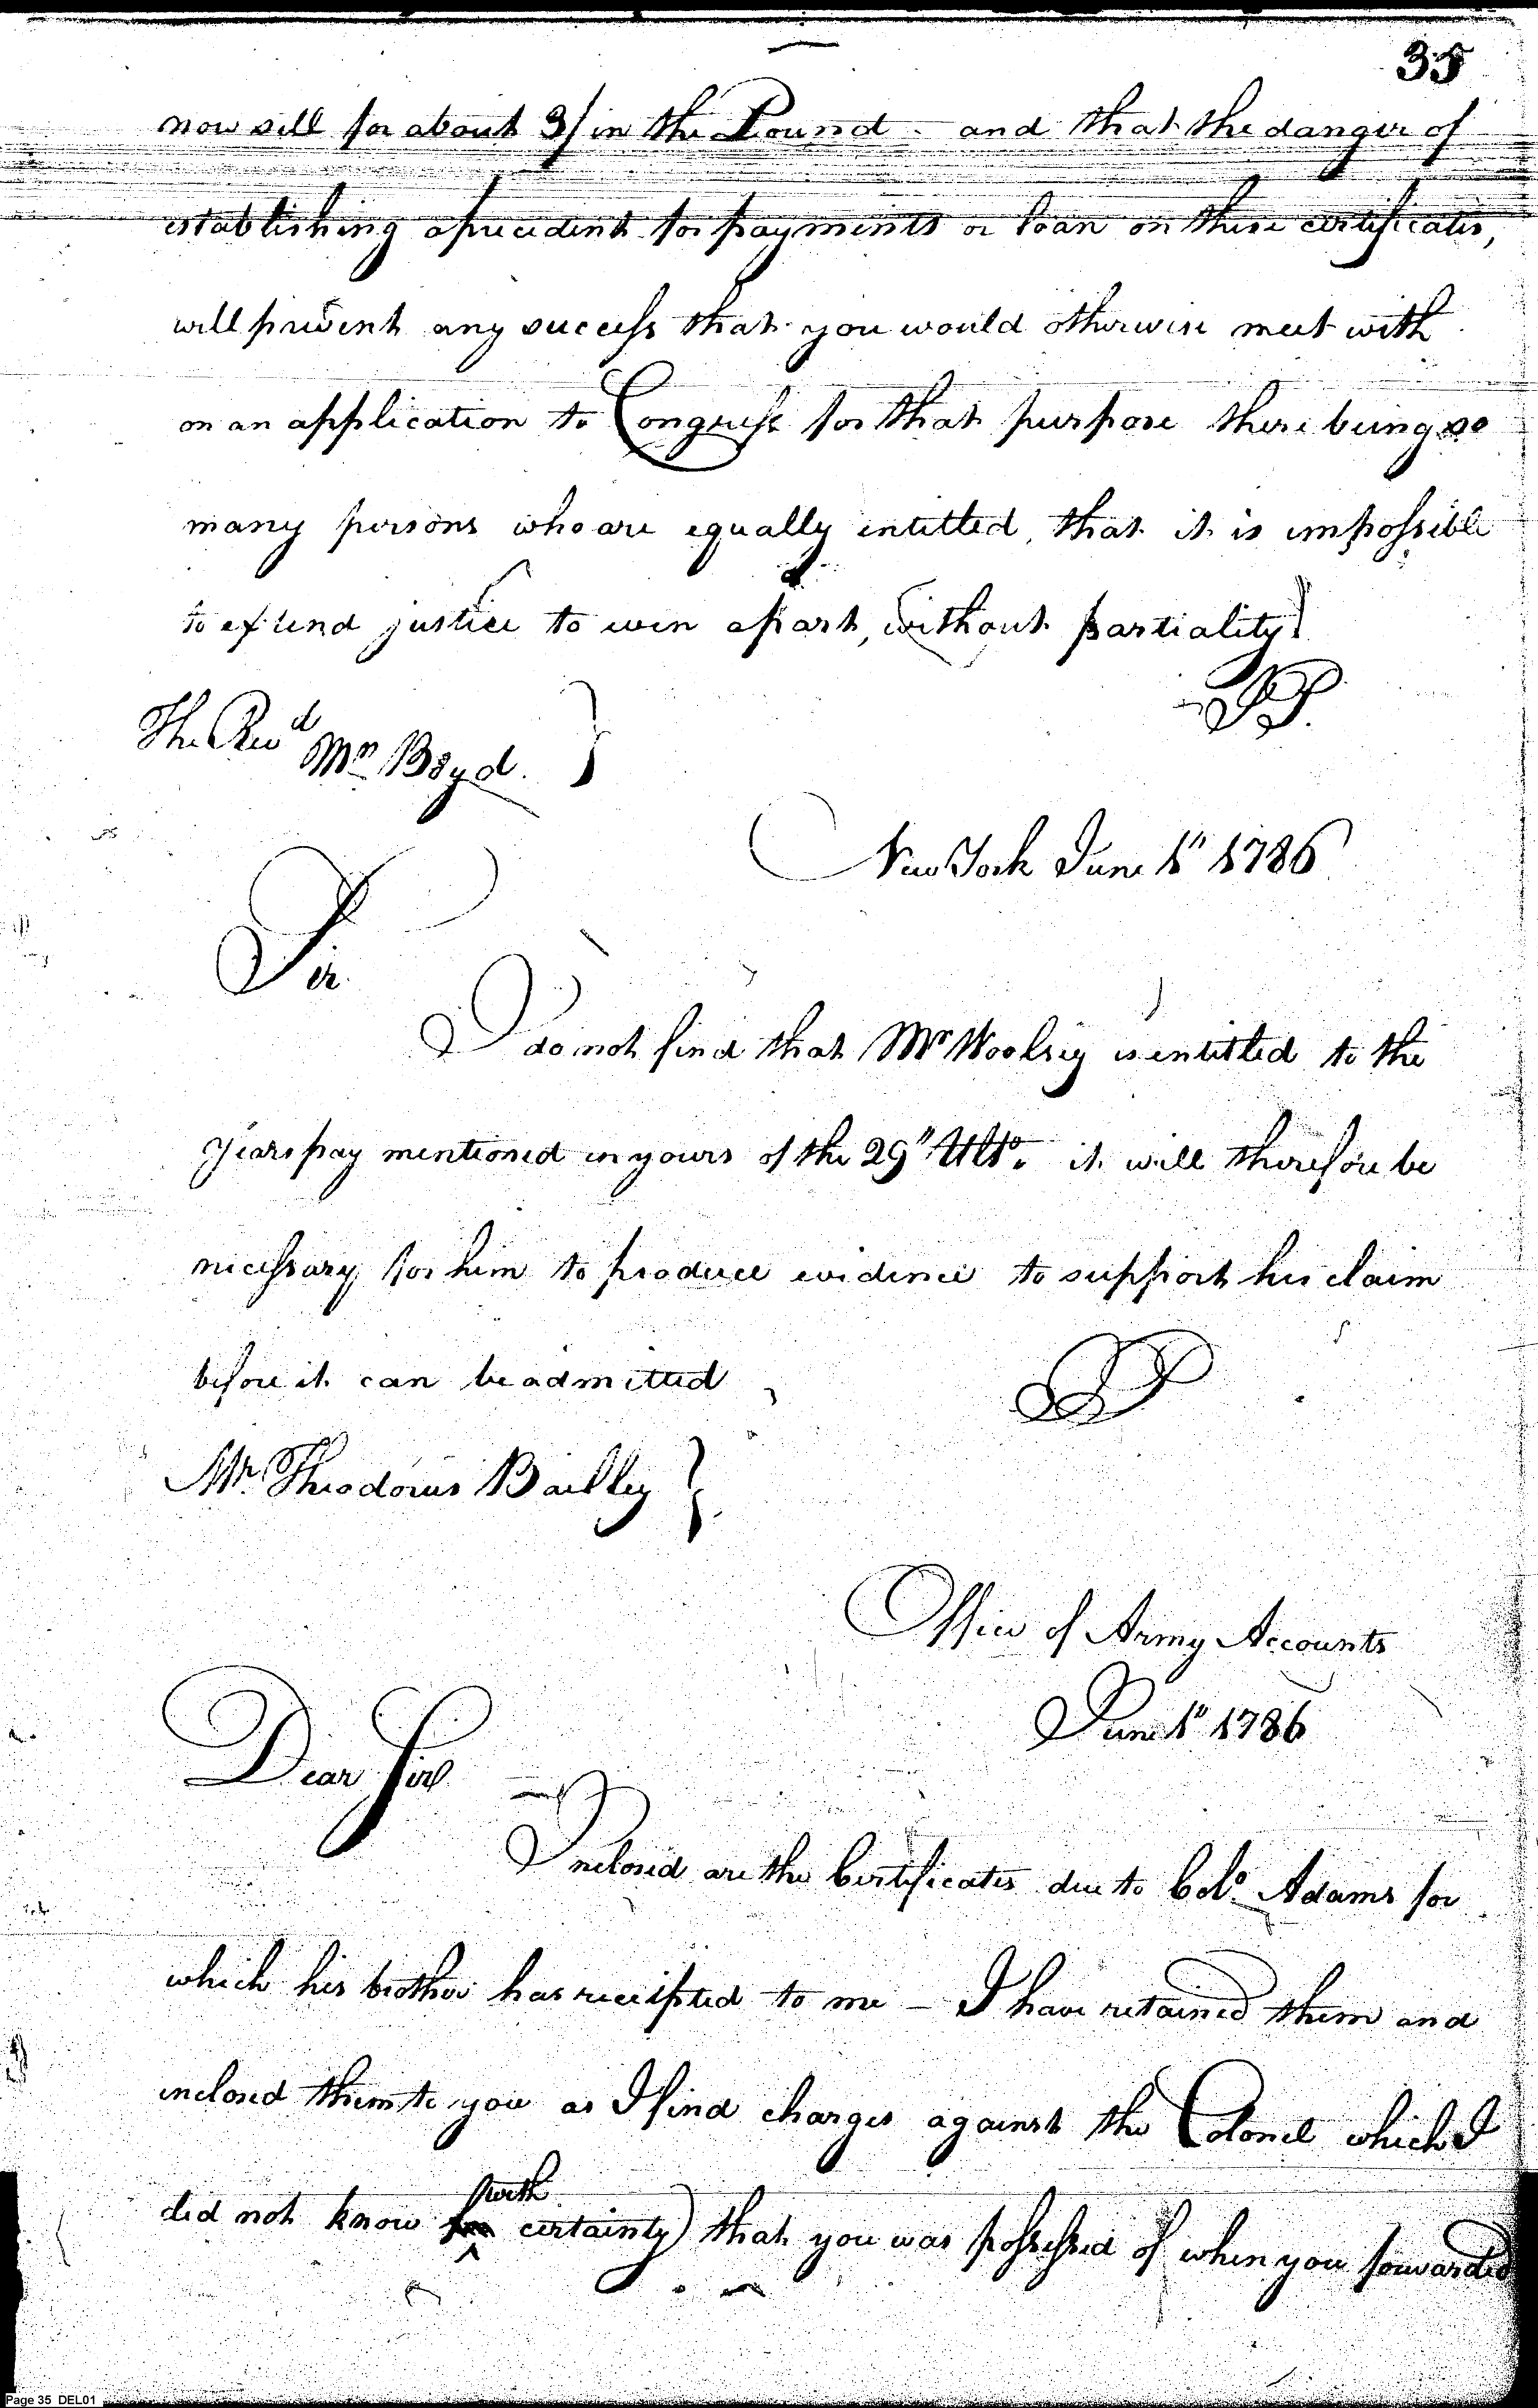 35
now sell for about 3/ in the Pound - and that the danger of
establishing a precedent for payments or loan on these certificates,
will prevent any success that you would otherwise meet with
on an application to Congress for that purpose there being so
many persons who are equally intitled, that it is impossible
to extend justice to even a part, without partiality
JP.
The Revd Mr Boyd. }
New York June 1" 1786
Sir.
I do not find that Mr Woolsey is entitled to the
years pay mentioned in yours of the 29" Ulto. it will therefore be
necessary for him to produce evidence to support his claim
before it can be admitted
JP
Mr. Theodorus Bailley }
Office of Army Accounts
June 1" 1786
Dear Sir
Inclosed are the Certificates due to Colo. Adams for
which his brother has receipted to me - I have retained them and
inclosed them to you as I find charges against the Colonel which I
with
did not know certainty) that you was possessed of when you forwarded
Page 35 DEL01